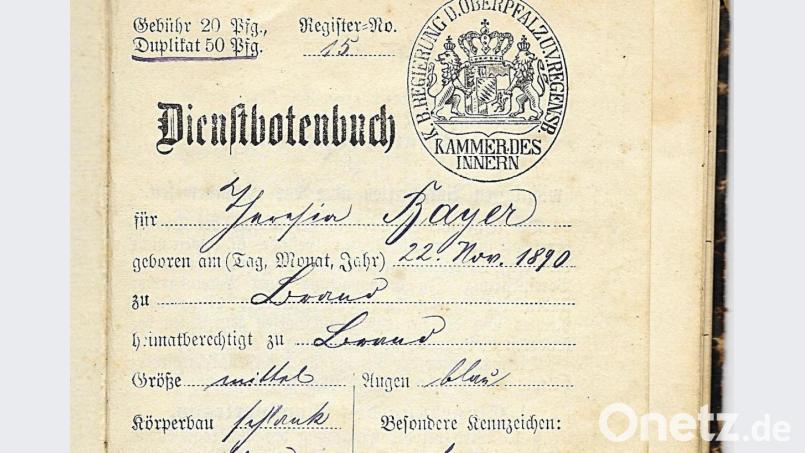 Gebühr 20 Pfg., Register-No.
Duplikat 50 Pfg. 15
K. B. REGIERUNG D. OBERPFALZ U. V. REGENSB.
KAMMER DES
INNERN
Dienstbotenbuch
für Theresia Bayer
geboren am (Tag, Monat, Jahr) 22. Nov. 1890
zu Brand
heimatberechtigt zu Brand
Größe mittel Augen blau
Körperbau schlank Besondere Kennzeichen:
Onetz.de